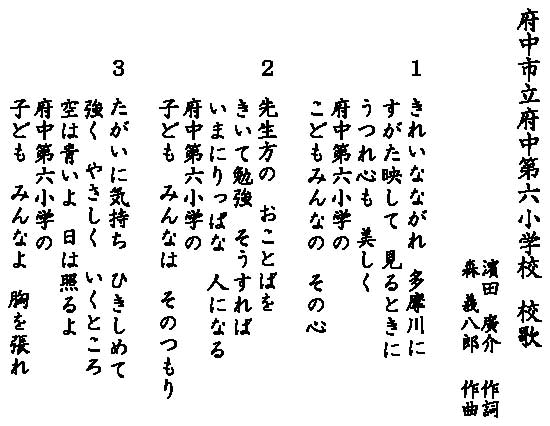 府中市立府中第六小学校　校歌
濱田　廣介　作詞
森　義八郎　作曲
1
きれいなながれ　多摩川に
すがた映して　見るときに
うつれ心も　美しく
府中第六小学の
こどもみんなの　その心
2
先生方の　おことばを
きいて勉強　そうすれば
いまにりっぱな　人になる
府中第六小学の
子ども　みんなは　そのつもり
3
たがいに気持ち　ひきしめて
強く　やさしく　いくところ
空は青いよ　日は照るよ
府中第六小学の
子ども　みんなよ　胸を張れ